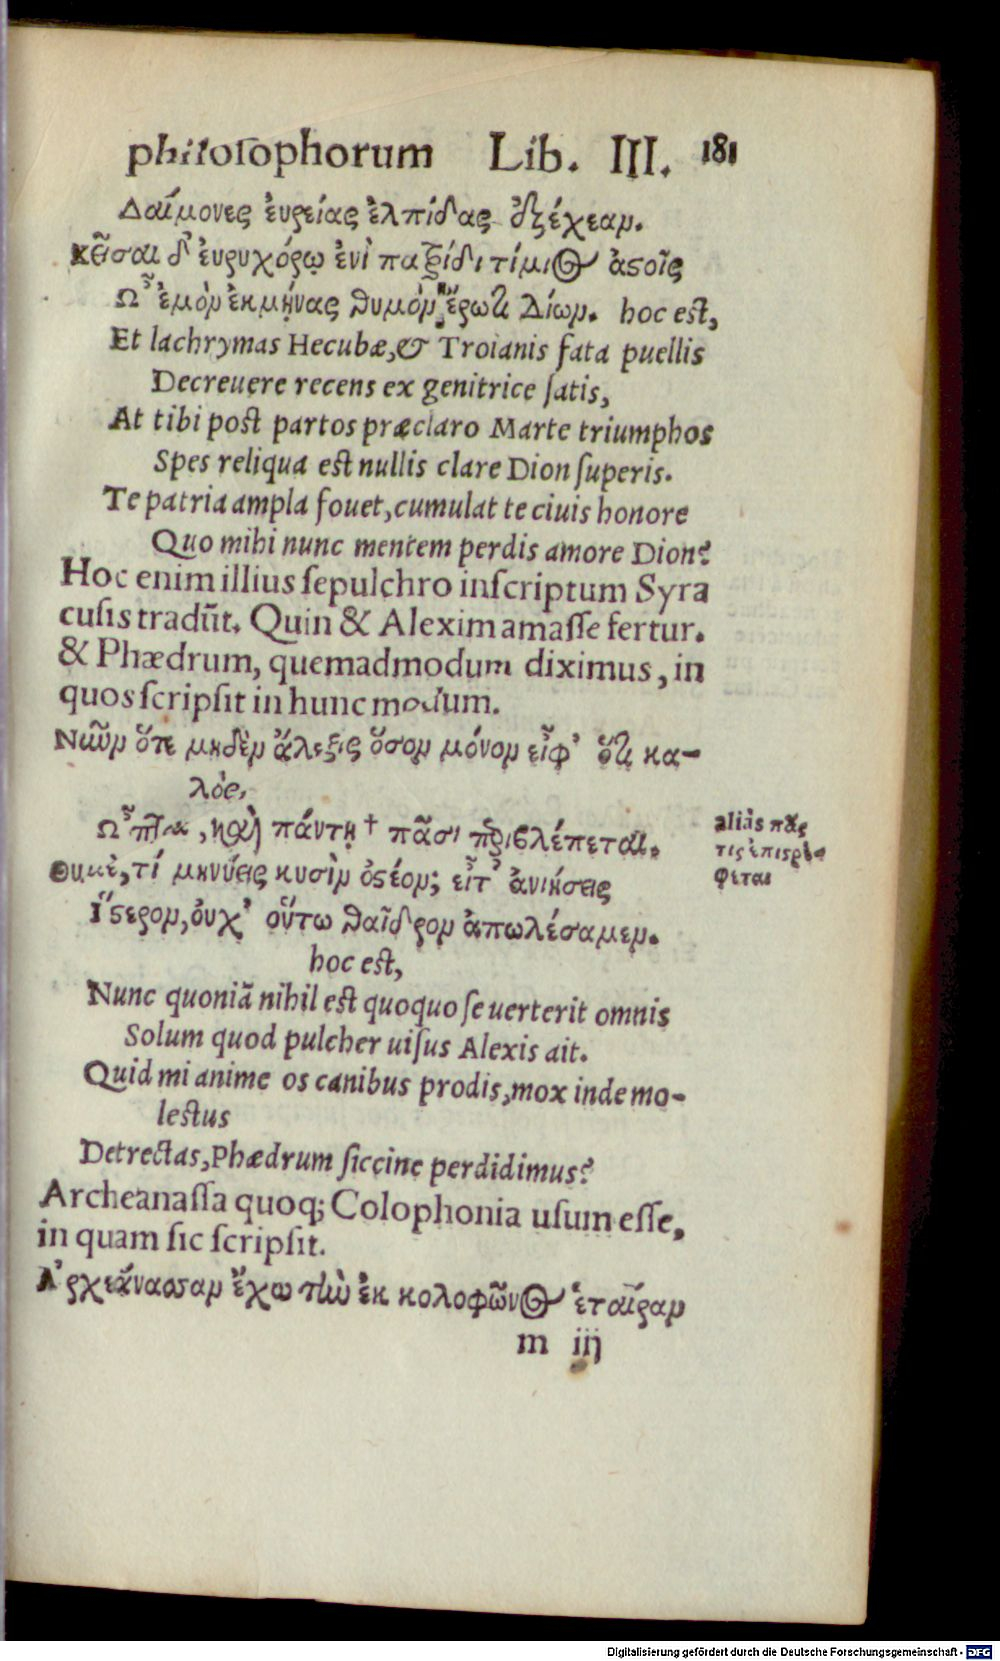 philosophorum Lib. III. 181
Δαίμονες ἐυρείας ἐλπίδας ἐξέχεαν.
Κεῖσαι δ' ἐυρυχόρῳ ἐνὶ πατρίδι τίμιος ἀστοῖς
Ὦ ἐμὸν ἐκμήνας θυμὸν ἔρωτι Δίων. hoc est,
Et lachrymas Hecubæ, & Troianis fata puellis
Decreuere recens ex genitrice satis,
At tibi post partos præclaro Marte triumphos
Spes reliqua est nullis clare Dion superis.
Te patria ampla fouet, cumulat te ciuis honore
Quo mihi nunc mentem perdis amore Dion?
Hoc enim illius sepulchro inscriptum Syra
cusis tradūt. Quin & Alexim amasse fertur.
& Phædrum, quemadmodum diximus, in
quos scripsit in hunc modum.
Νῶῦν ὅτε μηδὲν ἄλεξις ὅσον μόνον εἶφ' ὅτι κα-
λός,
Ὦπται, καὶ πάντη † πᾶσι περιβλέπεται.
Θυμὲ, τί μηνύεις κυσὶν ὀστέον; εἶτ' ἀνιήσεις
Ὕστερον, ὀυχ' οὕτω Φαῖδρον ἀπωλέσαμεν.
aliàs πᾶς
τις ἐπιστρέ-
φεται
hoc est,
Nunc quoniā nihil est quoquo se uerterit omnis
Solum quod pulcher uisus Alexis ait.
Quid mi anime os canibus prodis, mox inde mo-
lestus
Detrectas, Phædrum siccine perdidimus?
Archeanassa quoq; Colophonia usum esse,
in quam sic scripsit.
Ἀρχεάνασσαν ἔχω τὴν ἐκ κολοφῶνος ἑταίραν
m iij
Digitalisierung gefördert durch die Deutsche Forschungsgemeinschaft - DFG